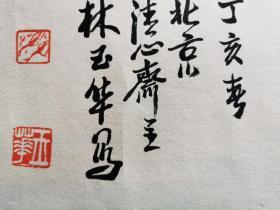 丁亥春
北京
清心齋主
林玉华写
玉華